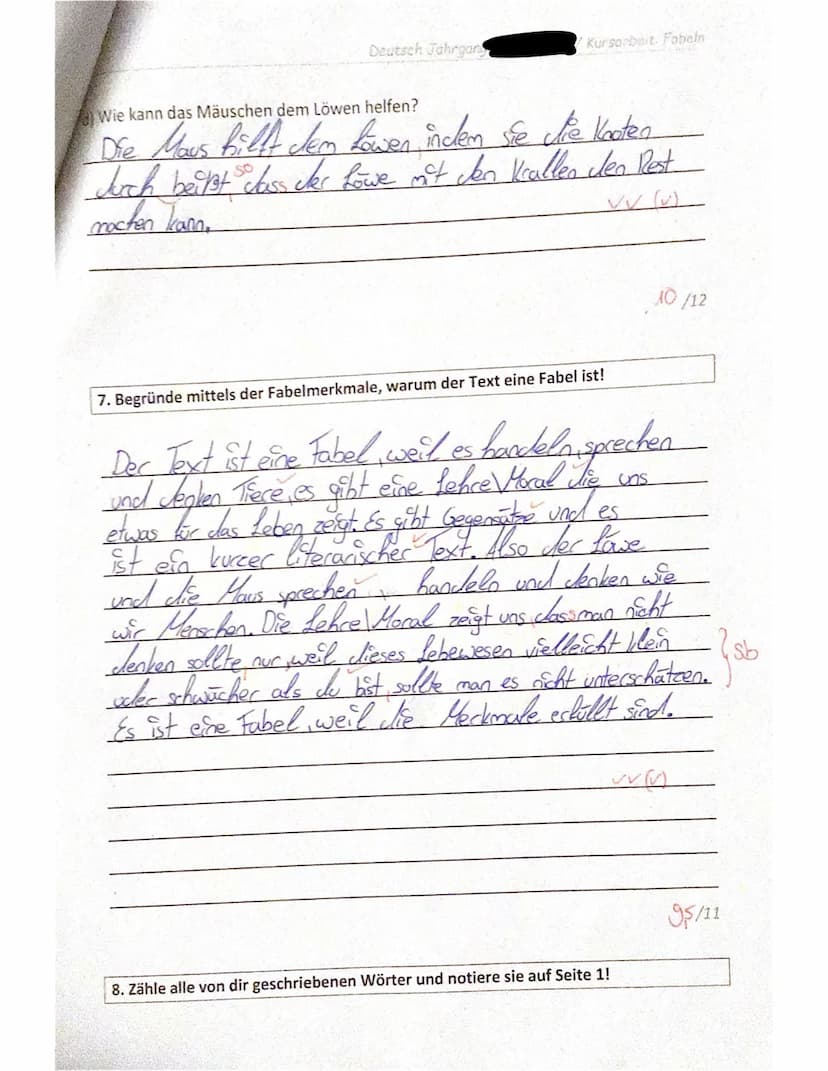 Deutsch Jahrgang / Kursarbeit: Fabeln
d) Wie kann das Mäuschen dem Löwen helfen?
Die Maus hilft dem Löwen, indem sie die Knoten
durch beißt, so dass der Löwe mit den Krallen den Rest
machen kann.
✓✓(✓)
10 /12
7. Begründe mittels der Fabelmerkmale, warum der Text eine Fabel ist!
Der Text ist eine Fabel, weil es handeln, sprechen
und denken Tiere, es gibt eine Lehre\Moral die uns
etwas für das Leben zeigt. Es gibt Gegensätze und es
ist ein kurzer literarischer Text. Also der Löwe
und die Maus sprechen, handeln und denken wie
wir Menschen. Die Lehre\Moral zeigt uns, dass man nicht
denken sollte, nur, weil dieses Lebewesen vielleicht klein
oder schwächer als du bist, sollte man es nicht unterschätzen.
Sb
Es ist eine Fabel, weil die Merkmale erfüllt sind.
✓✓(✓)
9,5/11
8. Zähle alle von dir geschriebenen Wörter und notiere sie auf Seite 1!